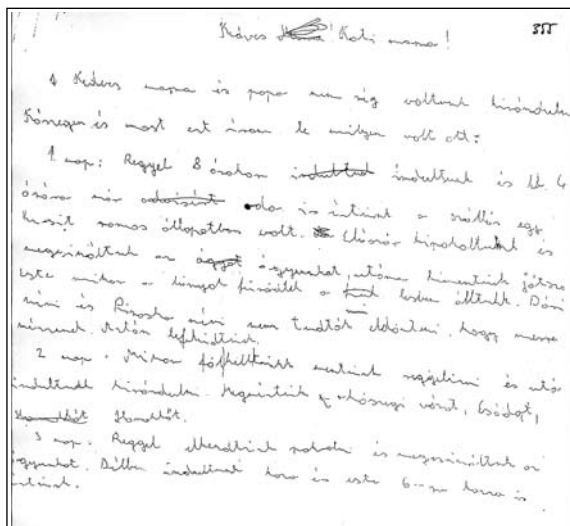 355
Kedves Kati mama!
Kedves mama és papa nem rég voltunk kirándulni
Kőszegen és most ezt írom le milyen volt ott:
1 nap: Reggel 8 órakor indultunk és kb. 4
órára már oda is értünk a szállás egy
kicsit romos állapotban volt. Először kipakoltunk és
megcsináltuk az ágyunkat, utána kimentünk játszani
este mikor a lányok fürödtek a lesben álltunk. Dóri
néni és Piroska néni nem tudták eldönteni, hogy messe
mérnek. Aztán lefeküdtünk.
2 nap. Mikor fölkeltünk mentünk reggelizni és utána
indultunk kirándulni. Megnéztük a kőszegi várat,
3 nap. Reggel elkezdtünk pakolni és megcsináltuk az
ágyunkat. Délben indultunk haza és este 6-ra haza is
értünk.